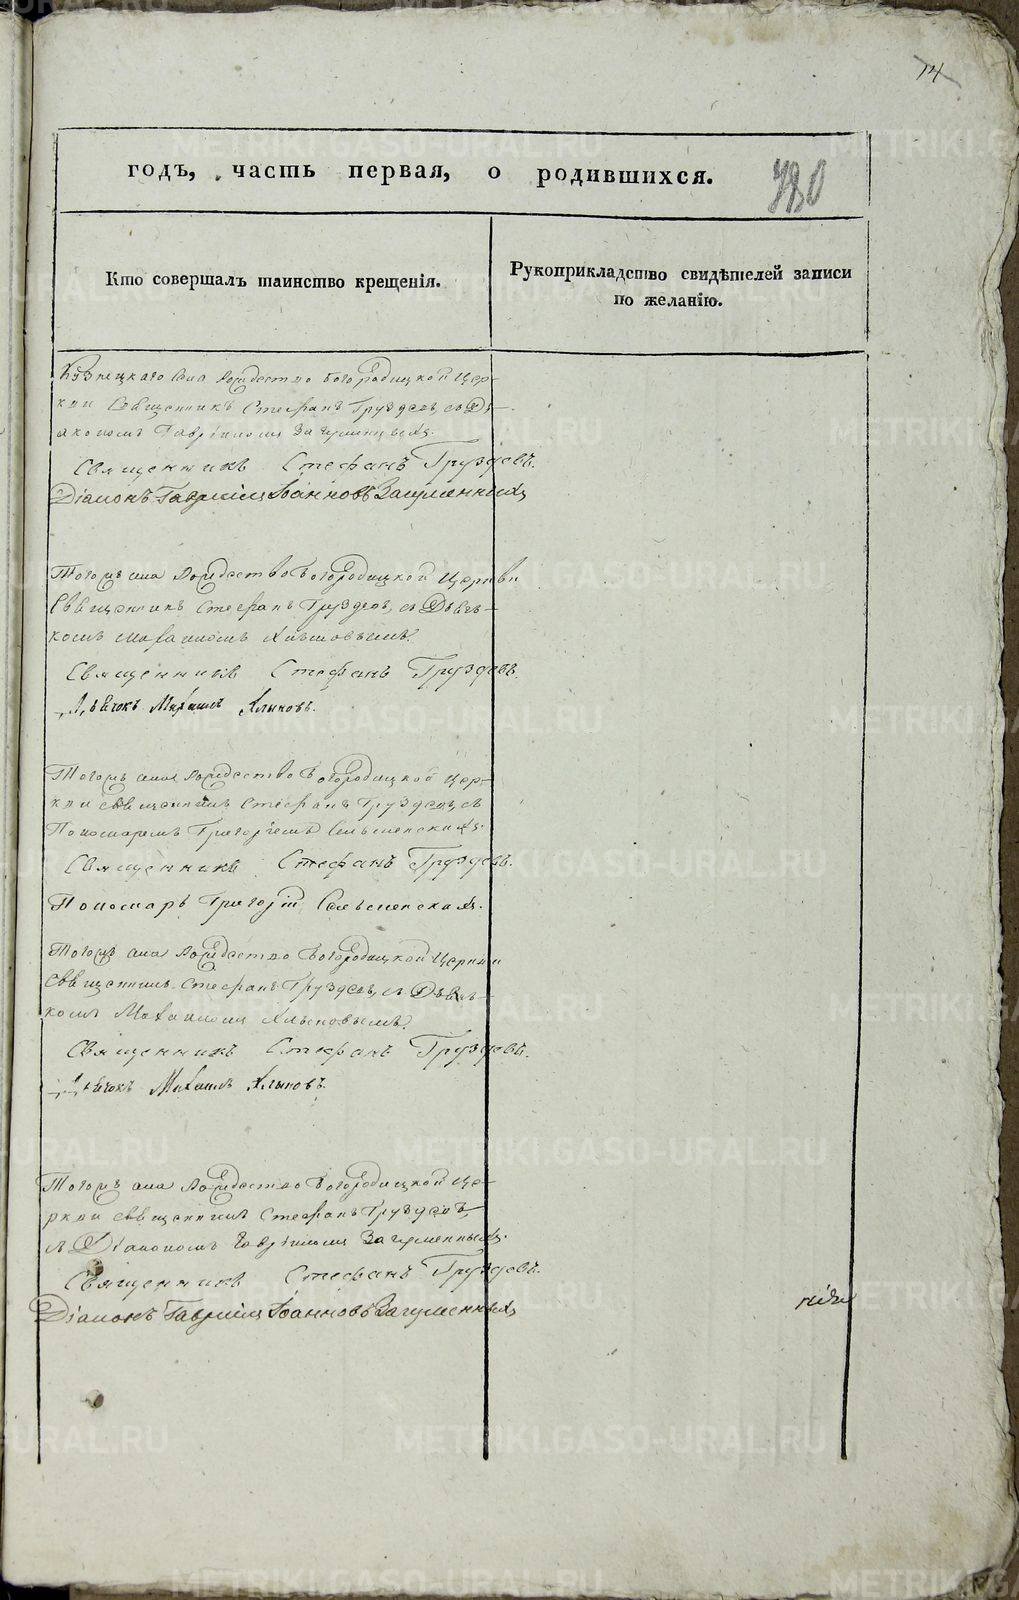 14
годъ, часть первая, о родившихся.
780
Кто совершалъ таинство крещенія.
Рукоприкладство свидѣтелей записи
по желанію.
Кузнецкаго села Рождество Богородицкой Цер-
кви Священникъ Стефанъ Груздевъ, съ Дъ-
акономъ Гавріиломъ Загуменныхъ.
Священникъ Стефанъ Груздевъ.
Діаконъ Гавріилъ Іоанновъ Загуменныхъ
Тогожъ села Рождество Богородицкой Церкви
Священникъ Стефанъ Груздевъ, съ Дьяч-
комъ Михаиломъ Хлыновымъ.
Священникъ Стефанъ Груздевъ.
Дьячокъ Михаилъ Хлыновъ.
Тогожъ села Рождество Богородицкой Цер-
кви священникъ Стефанъ Груздевъ, съ
Пономаремъ Григоріемъ
Священникъ Стефанъ Груздевъ.
Пономарь Григорій
Тогожъ села Рождество Богородицкой Церкви
священникъ Стефанъ Груздевъ, съ Дьяч-
комъ Михаиломъ Хлыновымъ.
Священникъ Стефанъ Груздевъ.
Дьячокъ Михаилъ Хлыновъ.
Тогожъ села Рождество Богородицкой Це-
ркви священникъ Стефанъ Груздевъ,
съ Діакономъ Гавріиломъ Загуменныхъ.
Священникъ Стефанъ Груздевъ.
Діаконъ Гавріилъ Іоанновъ Загуменныхъ
METRIKI.GASO-URAL.RU